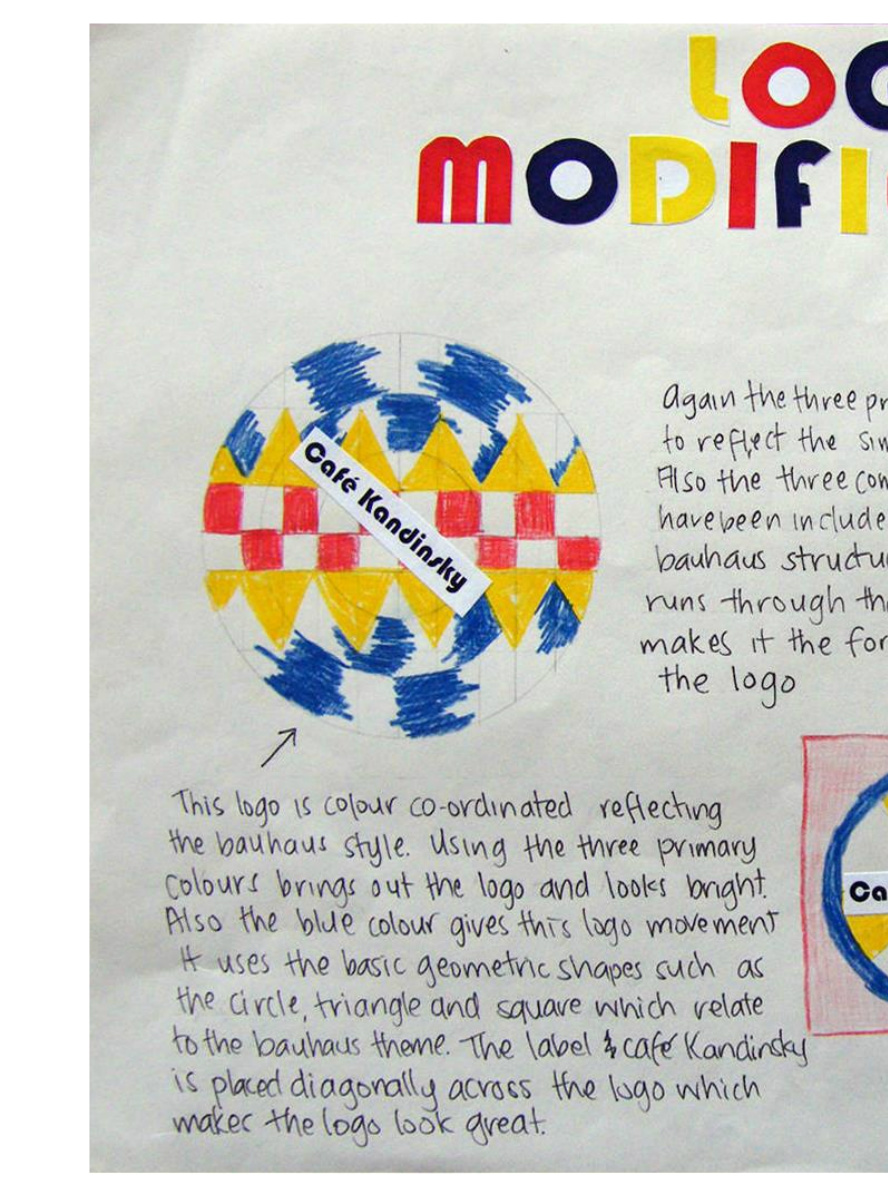 LOG
MODIFI
Café Kandinsky
Again the three pr
to reflect the sim
Also the three com
have been include
bauhaus structu
runs through th
makes it the for
the logo
Ca
This logo is colour co-ordinated reflecting
the bauhaus style. Using the three primary
colours brings out the logo and looks bright.
Also the blue colour gives this logo movement
It uses the basic geometric shapes such as
the circle, triangle and square which relate
to the bauhaus theme. The label & café Kandinsky
is placed diagonally across the logo which
makes the logo look great.